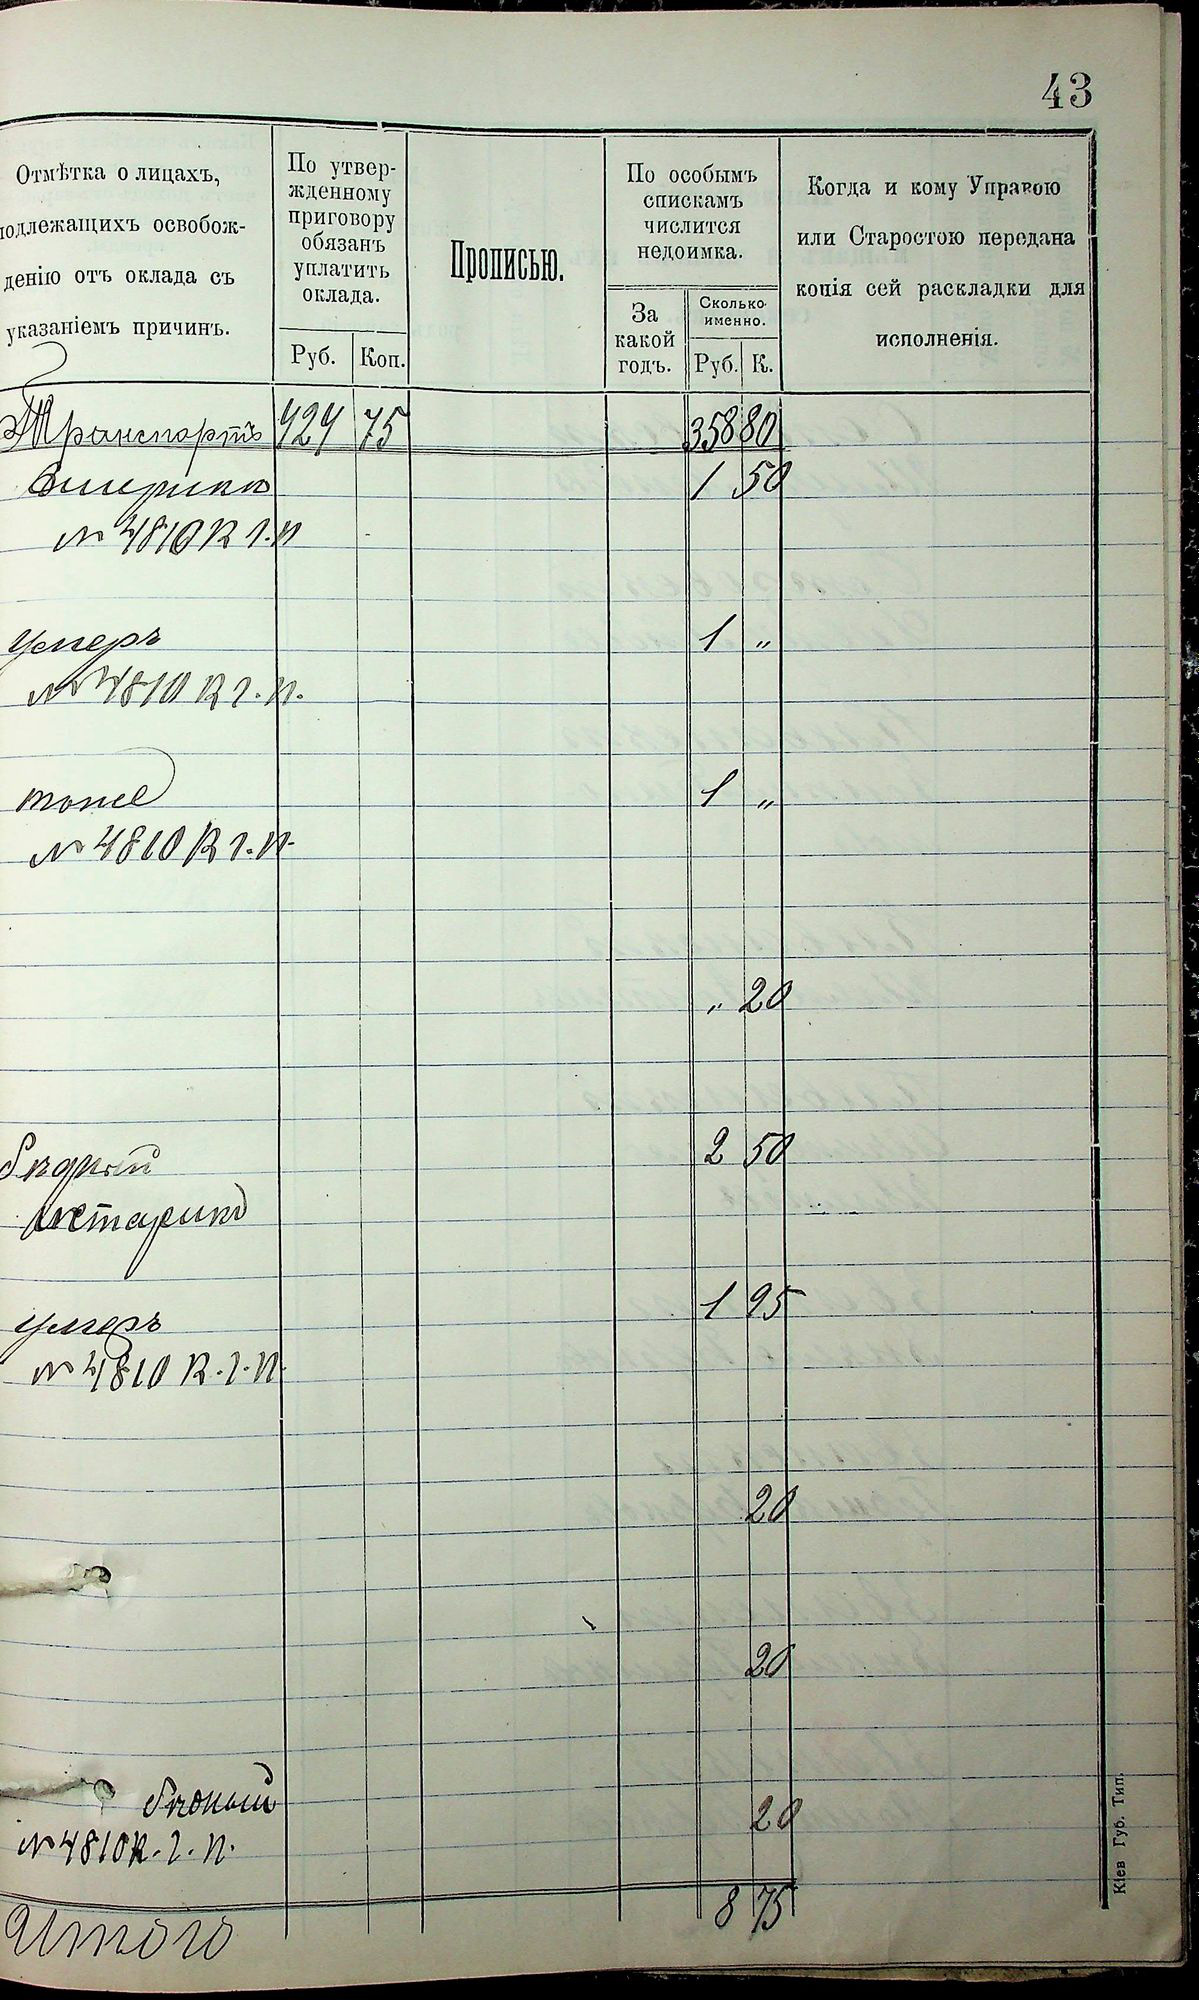 43
Отмѣтка о лицахъ,
подлежащихъ освобож-
денію отъ оклада съ
указаніемъ причинъ.
По утвер-
жденному
приговору
обязанъ
уплатить
оклада.
Руб. Коп.
Прописью.
По особымъ
спискамъ
числится
недоимка.
За
какой
годъ.
Сколько
именно.
Руб. К.
Когда и кому Управою
или Старостою передана
копія сей раскладки для
исполненія.
Транспортъ 424 75 358 80
Америка 1 50
№ 4810 К г. п
умеръ 1 „
№ 4810 К г. п.
тоже 1 „
№ 4810 К г. п.
„ 20
бѣдный 2 50
и старикъ
умеръ 1 95
№ 4810 К. г. п.
20
20
бѣдный 20
№ 4810 К. г. п.
Итого 8 75
Кіев Губ. Тип.